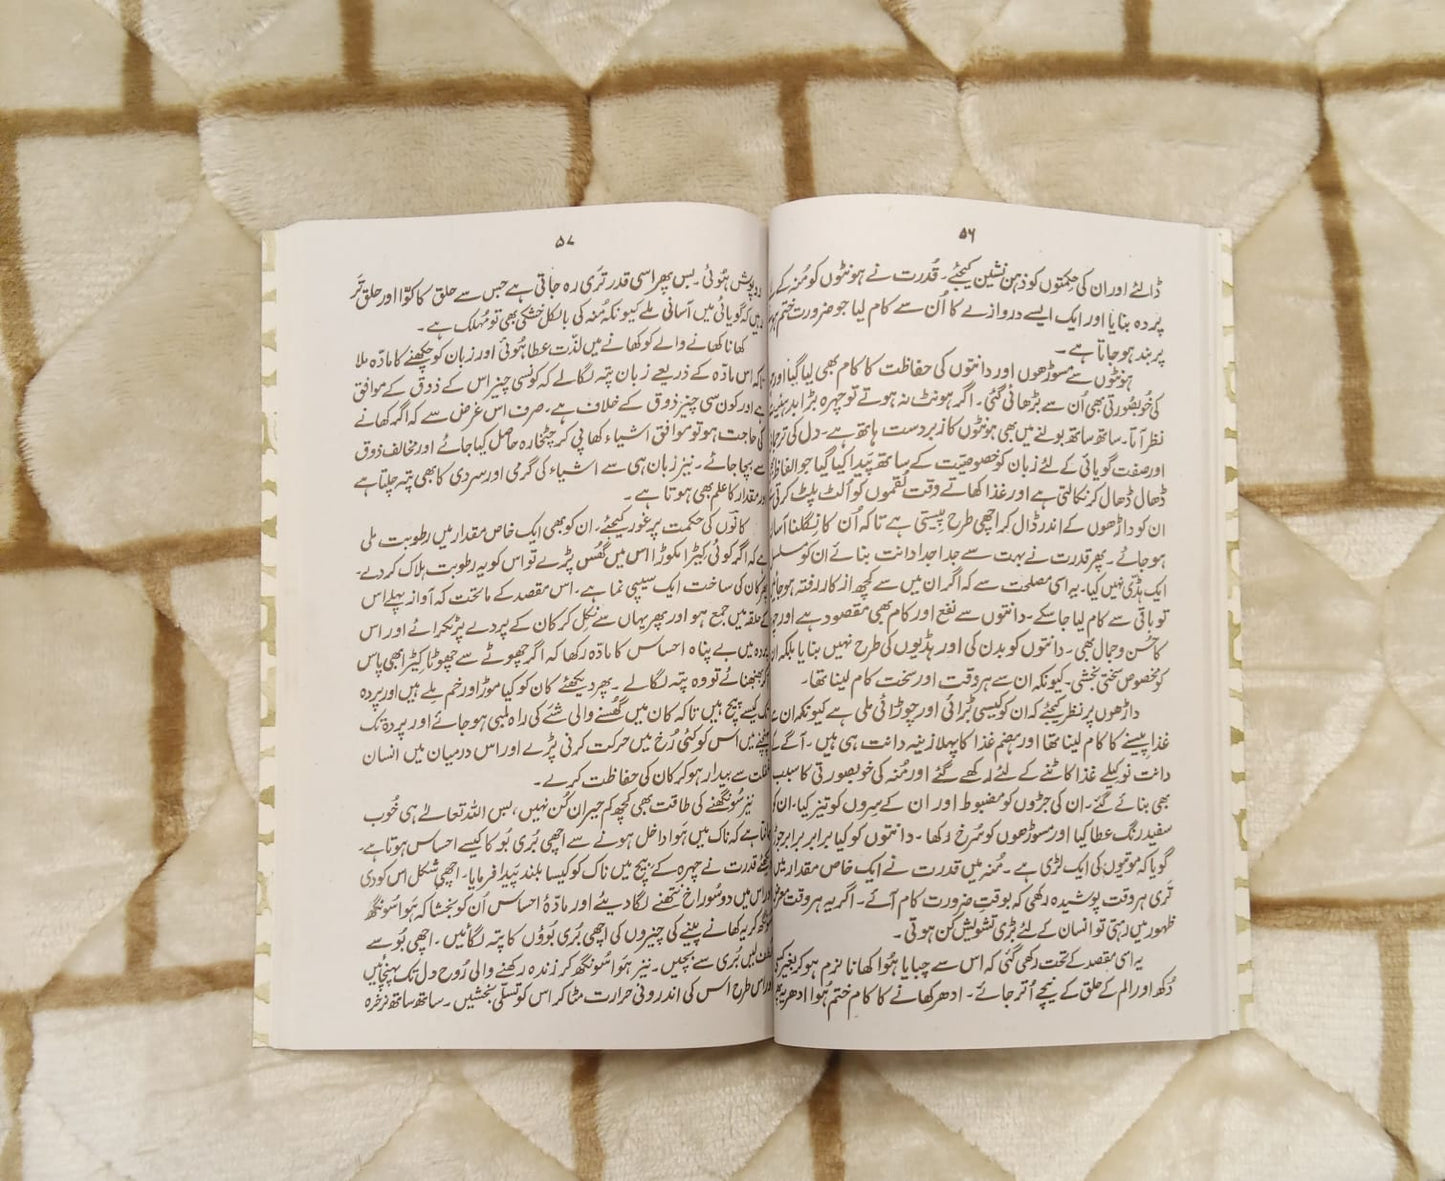 ۵۶
ڈالئے اور ان کی حکمتوں کو ذہن نشین کیجئے۔ قُدرت نے ہونٹوں کو مُنہ کے
پردہ بنایا اور ایک ایسے دروازے کا اُن سے کام لیا جو ضرورت ختم
پر بند ہو جاتا ہے۔
ہونٹوں سے مسوڑھوں اور دانتوں کی حفاظت کا کام بھی لیا گیا اور
کی خُوبصُورتی بھی اُن سے بڑھائی گئی۔ اگر ہونٹ نہ ہوتے تو چہرہ بڑا بد
نظر آتا۔ ساتھ ساتھ بولنے میں بھی ہونٹوں کا زبردست ہاتھ ہے۔ دل کی
اور صفت گویائی کے لئے زبان کو خصوصیّت کے ساتھ پَیدا کیا گیا جو الفاظ
ڈھال ڈھال کر نکالتی ہے اور غذا کھاتے وقت لُقموں کو اُلٹ پلٹ کرتی
ان کو داڑھوں کے اندر ڈال کر اچھی طرح پیستی ہے تاکہ اُن کا نِگلنا
ہو جائے۔ پھر قدرت نے بہت سے جدا جدا دانت بنائے ان کو مسلسل
ایک ہڈی نہیں کیا۔ یہ اسی مصلحت سے کہ اگر ان میں سے کچھ از کار رفتہ
تو باقی سے کام لیا جا سکے۔ دانتوں سے نفع اور کام بھی مقصود ہے اور
کا حُسن و جمال بھی۔ دانتوں کو بدن کی اور ہڈیوں کی طرح نہیں بنایا بلکہ ان
کو مخصوص سختی بخشی۔ کیونکہ ان سے ہر وقت اور سخت کام لینا تھا۔
داڑھوں پر نظر کیجئے کہ ان کو کیسی بُرائی اور چوڑائی ملی ہے کیونکہ ان سے
غذا پیسنے کا کام لینا تھا اور ہضم غذا کا پہلا زینہ دانت ہی ہیں۔ آگے کے
دانت نوکیلے غذا کاٹنے کے لئے رکھے گئے اور مُنہ کی خوبصورتی کا سبب
بھی بنائے گئے۔ ان کی جڑوں کو مضبوط اور ان کے سِروں کو تیز کیا۔ ان کو
سفید رنگ عطا کیا اور مسوڑھوں کو سُرخ رکھا۔ دانتوں کو کیا برابر برابر
گویا کہ موتیوں کی ایک لڑی ہے۔ مُنہ میں قدرت نے ایک خاص مقدار میں
تَری ہر وقت پوشیدہ رکھی کہ بوقتِ ضرورت کام آئے۔ اگر یہ ہر وقت
ظہور میں رہتی تو انسان کے لئے بڑی تشویش کُن ہوتی۔
یہ اسی مقصد کے تحت رکھی گئی کہ اس سے چبایا ہُوا کھانا نرم ہو کر بغیر کسی
دُکھ اور الم کے حلق کے نیچے اُتر جائے۔ ادھر کھانے کا کام ختم ہُوا ادھر یہ
۵۷
رُوپوش ہُوئی۔ بس پھر اسی قدر تَری رہ جاتی ہے جس سے حلق کا کوّا اور حلق تَر
رہیں کہ گویائی میں آسانی ملے کیونکہ مُنہ کی بالکل خشکی بھی تو مُہلک ہے۔
کھانا کھانے والے کو کھانے میں لذّت عطا ہُوئی اور زبان کو چکھنے کا مادّہ ملا
تاکہ اس مادّہ کے ذریعے زبان پتہ لگا لے کہ کونسی چیز اس کے ذوق کے موافق
ہے اور کون سی چیز ذوق کے خلاف ہے۔ صرف اس غرض سے کہ اگر کھانے
کی حاجت ہو تو موافق اشیاء کھا پی کر چٹخارہ حاصل کیا جائے اور مخالف ذوق
سے بچا جائے۔ نیز زبان ہی سے اشیاء کی گرمی اور سردی کا بھی پتہ چلتا ہے
اور مقدار کا علم بھی ہوتا ہے۔
کانوں کی حکمت پر غور کیجئے۔ ان کو بھی ایک خاص مقدار میں رطوبت ملی
ہے کہ اگر کوئی کیڑا مکوڑا اس میں گھُس پڑے تو اس کو یہ رطوبت ہلاک کر دے۔
پھر کان کی ساخت ایک سیپی نما ہے۔ اس مقصد کے ماتحت کہ آواز پہلے اس
کے حلقہ میں جمع ہو اور پھر یہاں سے نکل کر کان کے پردے پر ٹکرائے اور اس
پردہ میں بے پناہ احساس کا مادّہ رکھا کہ اگر چھوٹے سے چھوٹا کیڑا بھی پاس
آ کر بھنبھنائے تو وہ پتہ لگا لے۔ پھر دیکھئے کان کو کیا موڑ اور خم ملے ہیں اور پردہ
تک کیسے پیچ ہیں تاکہ کان میں گھُسنے والی شئے کی راہ لمبی ہو جائے اور پردہ تک
پہنچنے میں اس کو کئی رُخ میں حرکت کرنی پڑے اور اس درمیان میں انسان
غفلت سے بیدار ہو کر کان کی حفاظت کر لے۔
نیز سُونگھنے کی طاقت بھی کچھ کم حیران کُن نہیں، بس اللہ تعالےٰ ہی خُوب
جانتا ہے کہ ناک میں ہَوا داخل ہونے سے اچھی بُری بُو کا کیسے احساس ہوتا ہے۔
دیکھئے قدرت نے چہرہ کے بیچ میں ناک کو کیسا بلند پَیدا فرمایا۔ اچھی شکل اس کو دی
اور اس میں دو سُوراخ نتھنے لگا دیئے اور مادّۂ احساس اُن کو بخشا کہ ہَوا سُونگھ
سُونگھ کر یہ کھانے پینے کی چیزوں کی اچھی بُری بَوؤں کا پتہ لگائیں۔ اچھی بُو سے
لیں بُری سے بچیں۔ نیز ہَوا سُونگھ کر زندہ رکھنے والی رُوح دل تک پہنچائیں
اور اس طرح اس کی اندرونی حرارت مٹا کر اس کو تسلّی بخشیں۔ ساتھ ساتھ نرخرہ